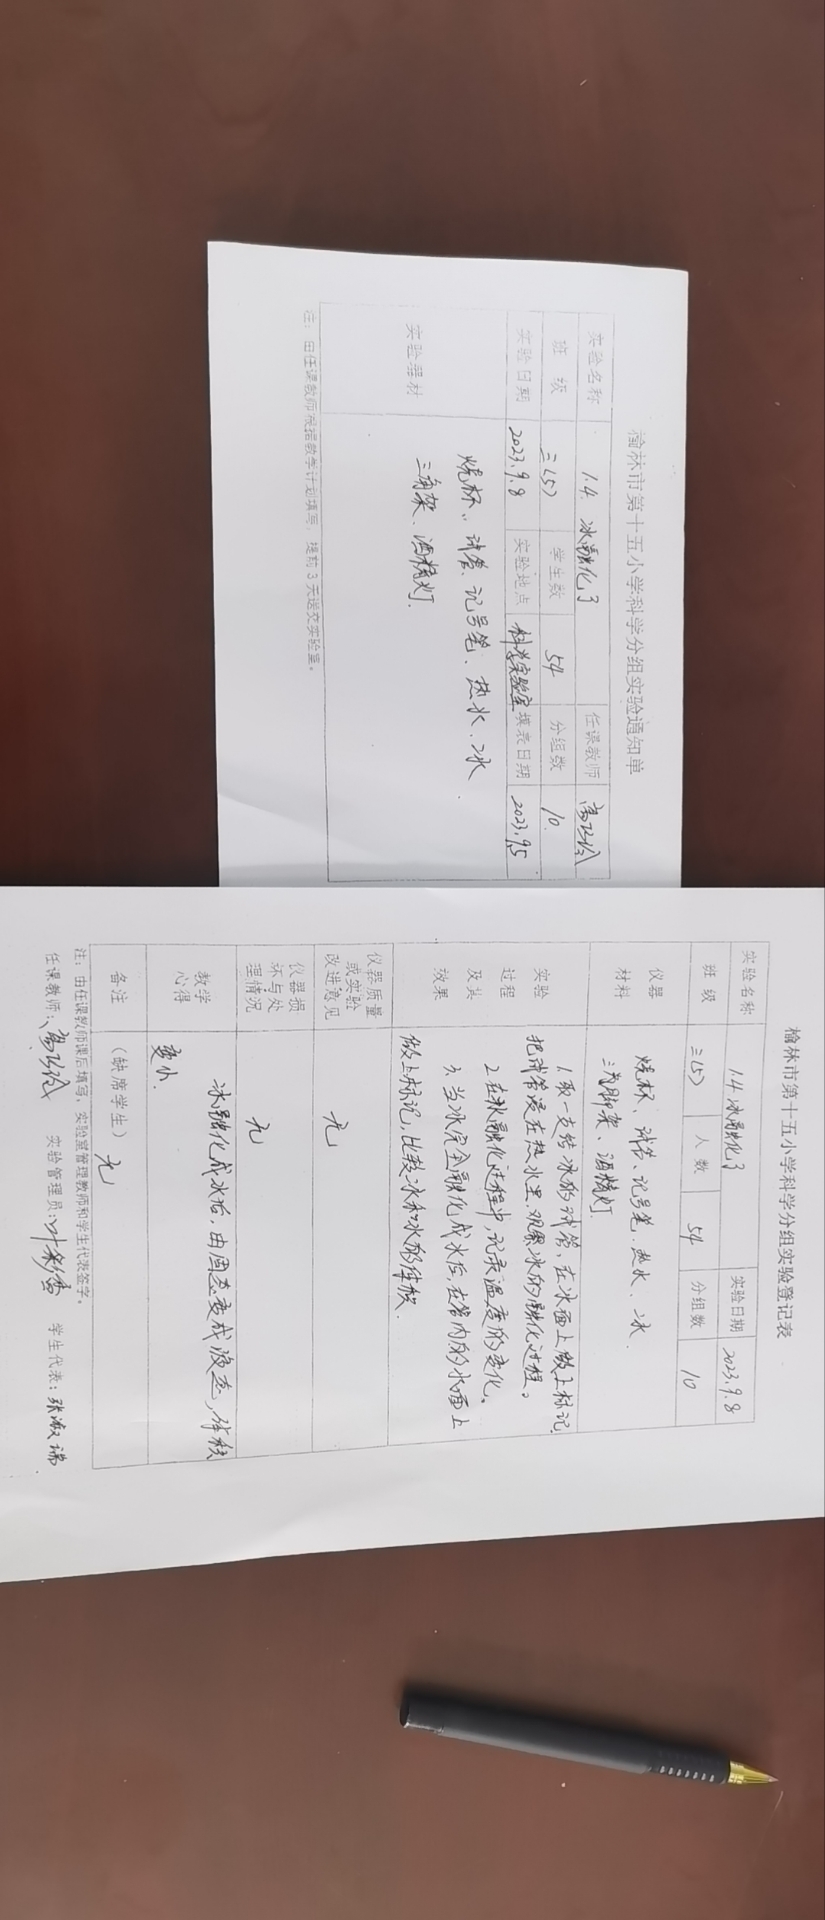 榆林市第十五小学科学分组实验通知单
实验名称 1.4. 冰融化了 任课教师
班 级 三(5) 学生数 54 分组数 10.
实验日期 2023.9.8 实验地点 科学实验室 填表日期 2023.9.5
实验器材 烧杯、试管、记号笔、热水、冰
三角架、酒精灯.
注：由任课教师根据教学计划填写，提前3天送交实验室。
榆林市第十五小学科学分组实验登记表
实验名称 1.4.冰融化了 实验日期 2023.9.8
班 级 三(5) 人 数 54 分组数 10
仪器
材料
烧杯、试管、记号笔、热水、冰.
三脚架、酒精灯.
实验
过程
及其
效果
1.取一支装冰的试管，在冰面上做上标记,
把试管浸在热水里.观察冰的融化过程。
2.在冰融化过程中,记录温度的变化.
3.当冰完全融化成水后,在管内的水面上
做上标记,比较冰和水的体积.
仪器质量
或实验
改进意见
无
仪器损
坏与处
理情况
无
教学
心得
冰融化成水后,由固态变成液态,体积
变小.
备注 （缺席学生） 无
注：由任课教师课后填写，实验室管理教师和学生代表签字。
任课教师： 实验管理员： 学生代表：